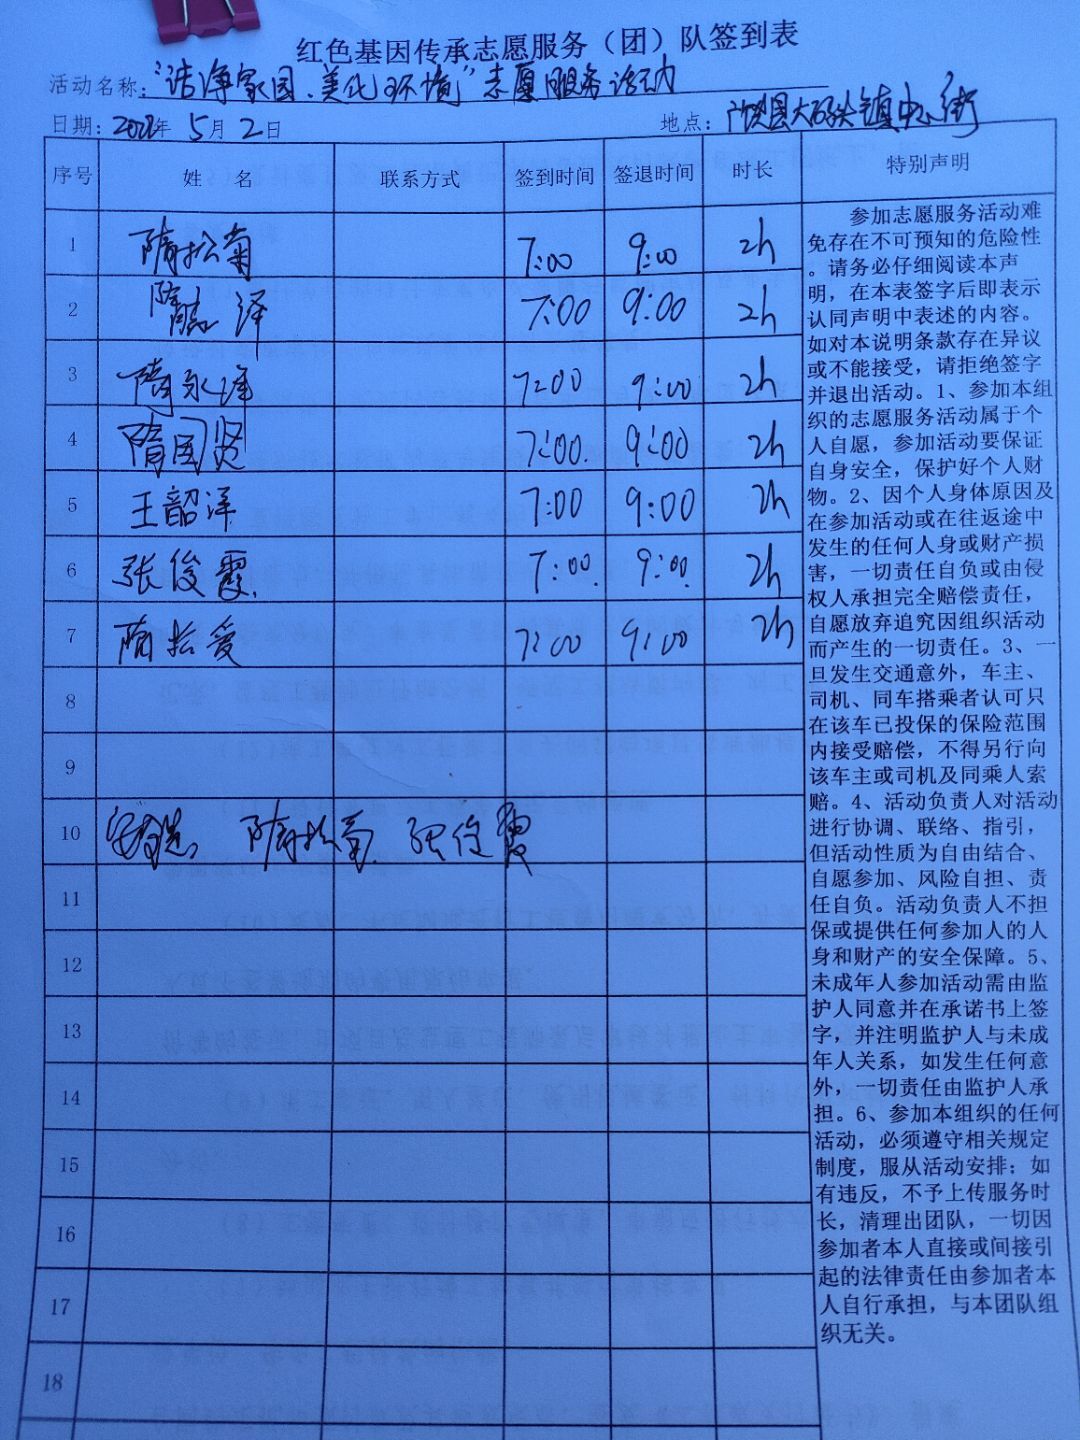 红色基因传承志愿服务（团）队签到表
活动名称："洁净家园、美化环境"志愿服务活动
日期：2022年 5月 2日 地点：广饶县大码头镇中心街
序号 姓 名 联系方式 签到时间 签退时间 时长 特别声明
1 隋松菊 7:00 9:00 2h
2 隋 泽 7:00 9:00 2h
3 隋永泽 7:00 9:00 2h
4 隋国贤 7:00 9:00 2h
5 王韶泽 7:00 9:00 2h
6 张俊霞 7:00 9:00 2h
7 隋松爱 7:00 9:00 2h
8
9
10 隋松菊 张俊霞
11
12
13
14
15
16
17
18
参加志愿服务活动难
免存在不可预知的危险性
。请务必仔细阅读本声
明，在本表签字后即表示
认同声明中表述的内容。
如对本说明条款存在异议
或不能接受，请拒绝签字
并退出活动。1、参加本组
织的志愿服务活动属于个
人自愿，参加活动要保证
自身安全，保护好个人财
物。2、因个人身体原因及
在参加活动或在往返途中
发生的任何人身或财产损
害，一切责任自负或由侵
权人承担完全赔偿责任，
自愿放弃追究因组织活动
而产生的一切责任。3、一
旦发生交通意外，车主、
司机、同车搭乘者认可只
在该车已投保的保险范围
内接受赔偿，不得另行向
该车主或司机及同乘人索
赔。4、活动负责人对活动
进行协调、联络、指引，
但活动性质为自由结合、
自愿参加、风险自担、责
任自负。活动负责人不担
保或提供任何参加人的人
身和财产的安全保障。5、
未成年人参加活动需由监
护人同意并在承诺书上签
字，并注明监护人与未成
年人关系，如发生任何意
外，一切责任由监护人承
担。6、参加本组织的任何
活动，必须遵守相关规定
制度，服从活动安排；如
有违反，不予上传服务时
长，清理出团队，一切因
参加者本人直接或间接引
起的法律责任由参加者本
人自行承担，与本团队组
织无关。